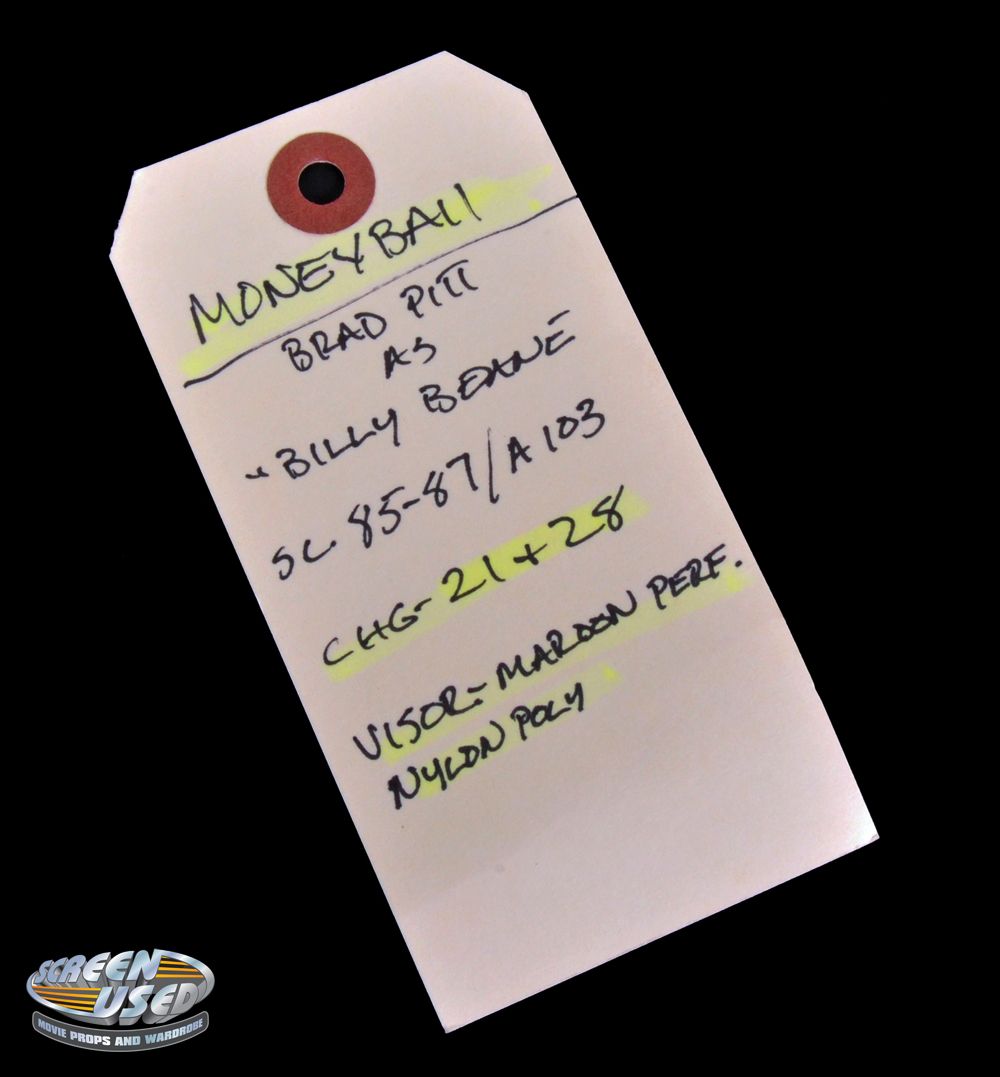 MONEYBALL
BRAD PITT
AS
"BILLY BEANE
SC. 85-87/A103
CHG- 21 + 28
VISOR- MAROON PERF.
NYLON POLY
SCREEN
USED
MOVIE PROPS AND WARDROBE